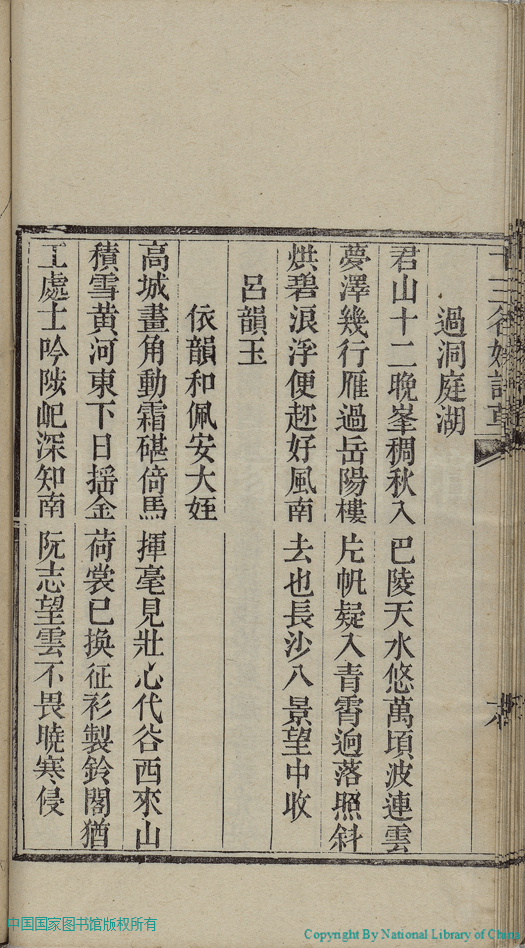 十三名媛詩草
過洞庭湖
君山十二晚峯稠秋入巴陵天水悠萬頃波連雲
夢澤幾行雁過岳陽樓片帆疑入青霄迥落照斜
烘碧浪浮便趂好風南去也長沙八景望中收
呂韻玉
依韻和佩安大姪
高城畫角動霜碪倚馬揮毫見壯心代谷西來山
積雪黃河東下日揺金荷裳已換征衫製鈴閣猶
工處士吟陟屺深知南阮志望雲不畏曉寒侵
中国国家图书馆版权所有
Copyright By National Library of China